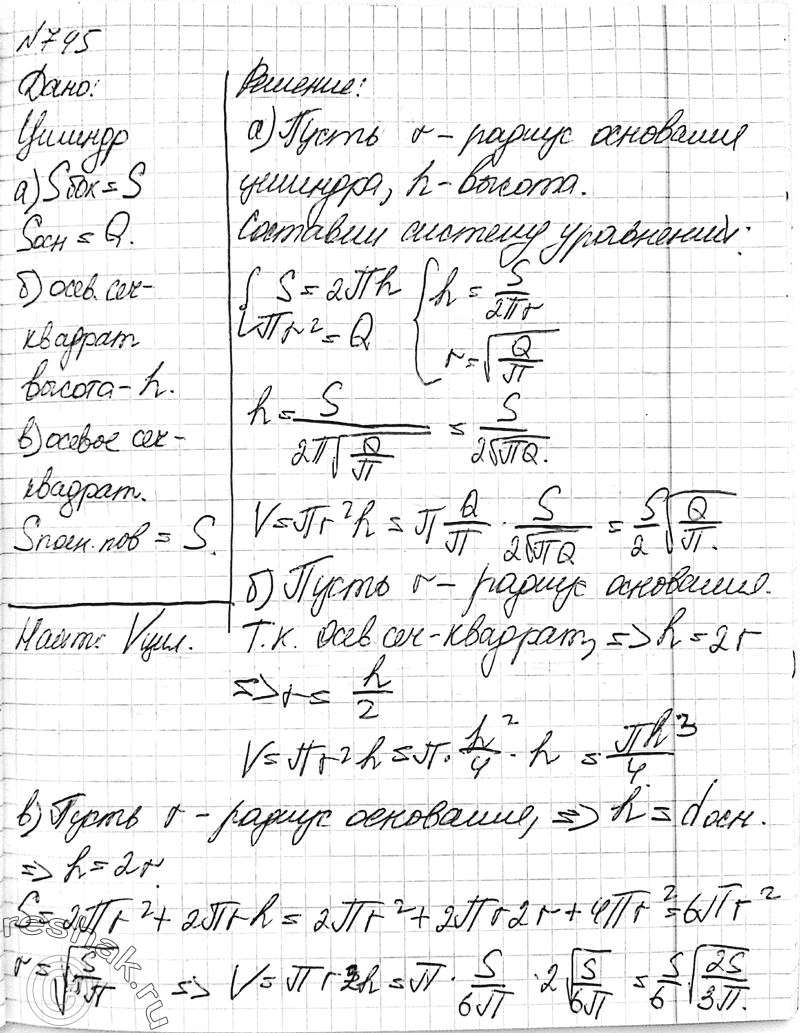 №745
Дано:
Цилиндр
а) Sбок = S
Sосн = Q.
б) осев. сеч-
квадрат
высота - h.
в) осевое сеч-
квадрат.
Sполн. пов = S.
Найти: Vцил.
Решение:
а) Пусть r - радиус основания
цилиндра, h - высота.
Составим систему уравнений:
{ S = 2πh { h = S/(2πr)
πr² = Q r = √(Q/π)
h = S/(2π√(Q/π)) = S/(2√(πQ)).
V = πr²h = π Q/π · S/(2√(πQ)) = S/2 √(Q/π).
б) Пусть r - радиус основания.
Т.к. осев сеч-квадрат, => h = 2r
=> r = h/2
V = πr²h = π · h²/4 · h = πh³/4
в) Пусть r - радиус основания, => h = dосн.
=> h = 2r.
S = 2πr² + 2πrh = 2πr² + 2πr2r + 4πr² = 6πr²
=> V = πr²h = π · S/(6π) · 2√(S/(6π)) = S/6 √(2S/(3π)).
reshak.ru